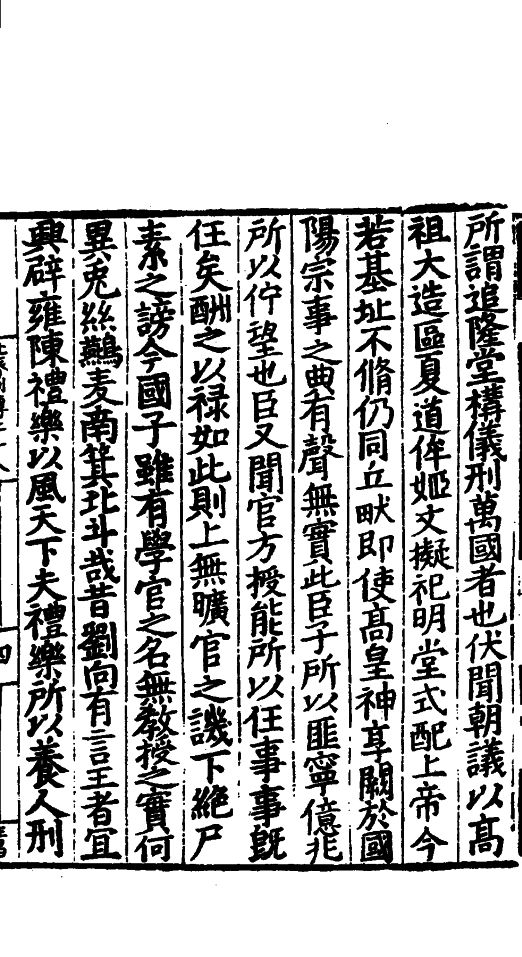 所謂追隆堂構儀刑萬國者也伏聞朝議以髙
祖大造區夏道侔姬文擬祀明堂式配上帝今
若基址不脩仍同丘畎即使髙皇神享闕於國
陽宗事之典有聲無實此臣子所以匪寧億兆
所以佇望也臣又聞官方授能所以任事事旣
任矣酬之以禄如此則上無曠官之譏下絶尸
素之謗今國子雖有學官之名無教授之實何
異兎絲鷰麦南箕北斗哉昔劉向有言王者宜
興辟雍陳禮樂以風天下夫禮樂所以養人刑
四